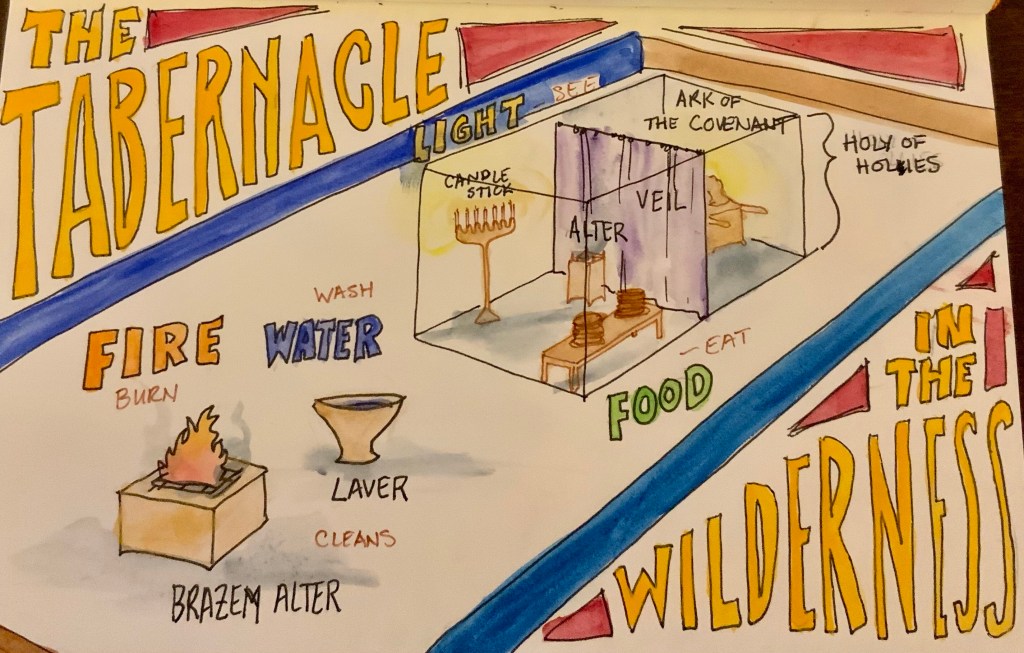 THE
TABERNACLE
LIGHT - SEE
ARK OF
THE COVENANT
HOLY OF
HOLLIES
CANDLE
STICK
VEIL
ALTER
WASH
FIRE
WATER
BURN
- EAT
FOOD
LAVER
CLEANS
BRAZEM ALTER
IN
THE
WILDERNESS